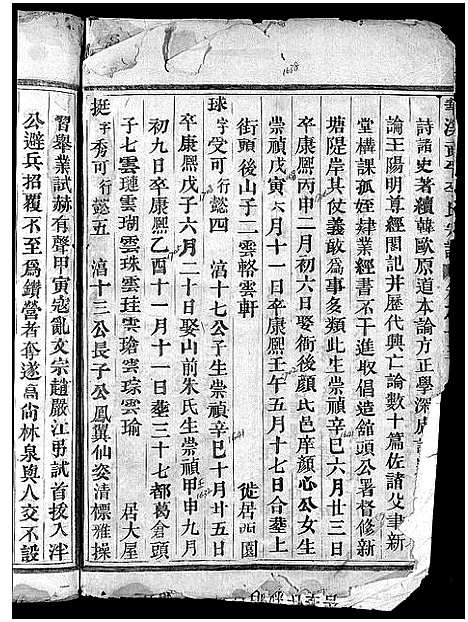 詩謠史著續韓歐原道本論方正學深慮
論王陽明尊經閣記并歷代興亡論數十篇佐諸父聿新
堂構課孤姪肄業經書不干進取倡造館頭公署督修新
塘隄岸其仗義敢為事多類此生崇禎辛巳六月廿三日
卒康熙丙申二月初六日娶衙後顏氏邑庠顏心公女生
崇禎戊寅六月十一日卒康熙壬午五月十七日合塟上
街頭後山子二雲輅雲軒 徙居西園
球字受可行懿四 濳十七公子生崇禎辛巳十月廿五日
卒康熙戊子六月二十日娶山前朱氏生崇禎甲申九月
初九日卒康熙乙酉十一月十一日塟三十七都葛倉頭
子七雲璉雲瑚雲珠雲珪雲瑲雲琮雲瑜 居大屋
挺字秀可行懿五 濳十三公長子公鳳翼仙姿清標雅操
習舉業試赫有聲甲寅寇亂文宗趙嚴江弔試首拔入泮
公避兵招覆不至為鑽營者奪遂高尚林泉與人交不設